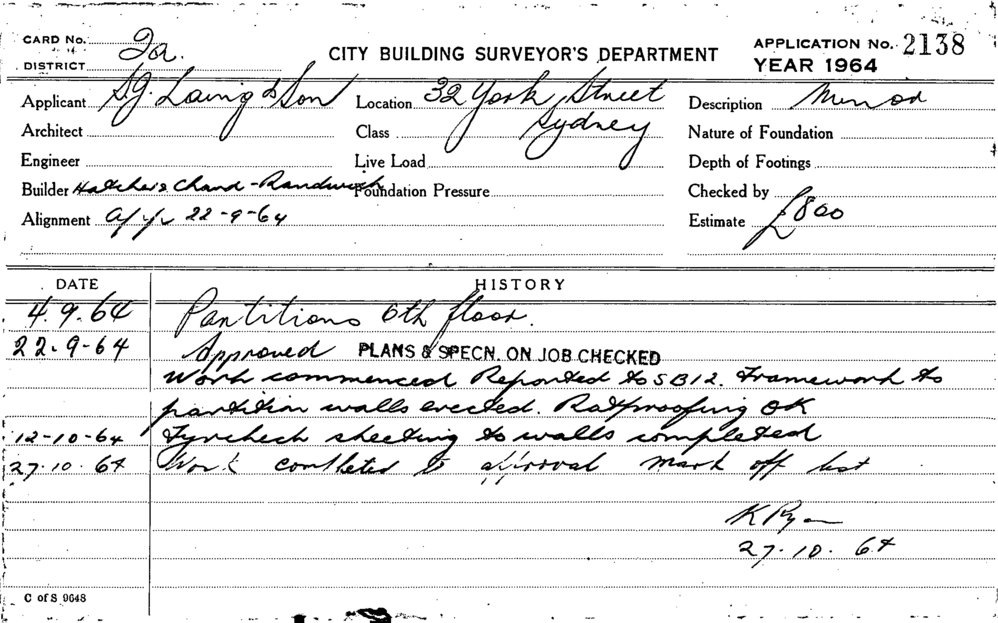 CARD No. 2a.
DISTRICT
CITY BUILDING SURVEYOR'S DEPARTMENT
APPLICATION No. 2138
YEAR 1964
Applicant S.J. Laing & Son
Location 32 York Street
Sydney
Description Minor
Architect
Class
Nature of Foundation
Engineer
Live Load
Depth of Footings
Builder Hatcher & Chand - Randwick
Foundation Pressure
Checked by
Alignment 22-9-64
Estimate £800
DATE HISTORY
4.9.64 Partitions 6th floor.
22.9-64 Approved PLANS & SPECN. ON JOB CHECKED
Work commenced Reported to SB12. Framework to
partition walls erected. Ratproofing OK
12-10-64 Fyrchech sheeting to walls completed
27.10.64 Work completed to approval mark off list
K Ryan
27.10.64
C of S 9648